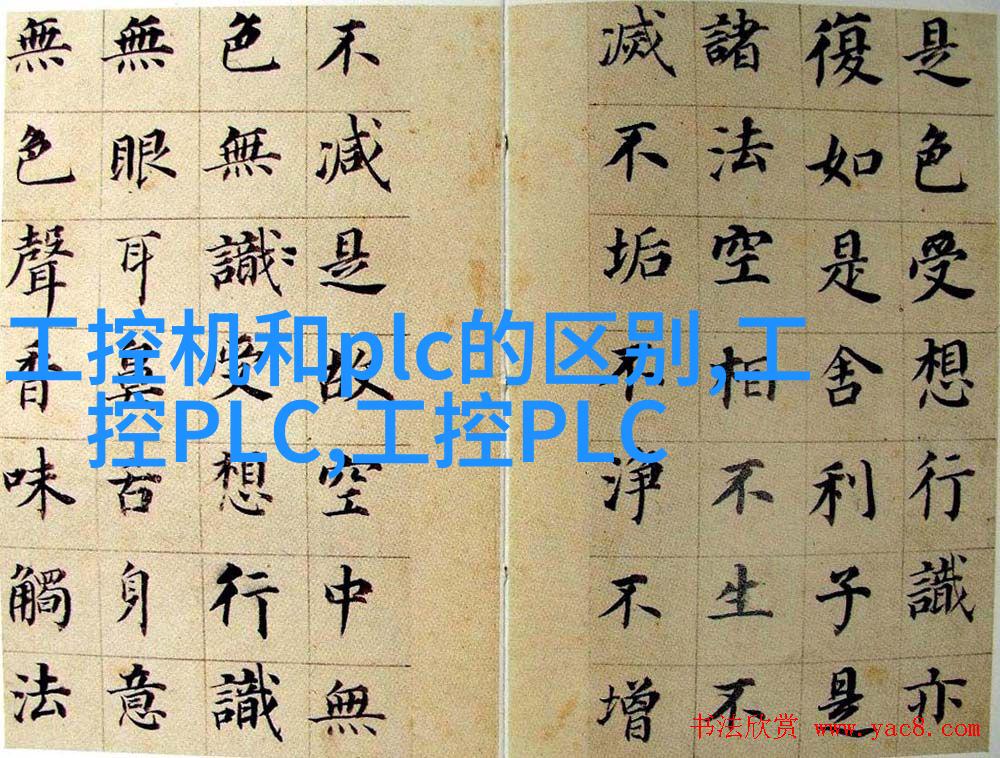 是色受想行識亦
復如是舍利子是
諸法空相不生不
滅不垢不淨不增
不減是故空中無
色無識受想行識
無眼耳鼻舌身意
無色聲香味觸法
工控机和plc的区别,工
控PLC,工控PLC
书法欣赏 www.yac8.com